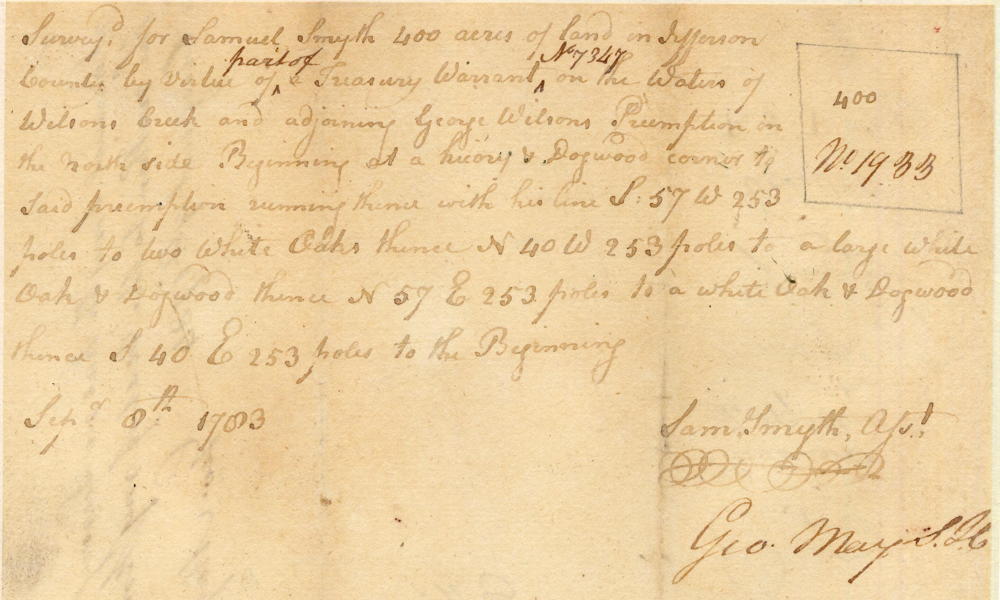 Survey.d for Samuel Smyth 400 acres of land in Jefferson
part of No 7347
County by Virtue of ^ a Treasury Warrant ^ on the Waters of
Wilsons Creek and adjoining George Wilsons Preemption on
the North side Beginning at a hicory & Dogwood corner to
said preemption running thence with his line S. 57 W 253
poles to two White Oaks thence N 40 W 253 poles to a large white
Oak & Dogwood thence N 57 E 253 poles to a white Oak & Dogwood
thence S 40 E 253 poles to the Beginning
Sepr 8th 1783
400
No 1933
Sam. Smyth, Asst
Geo. May S.J.C